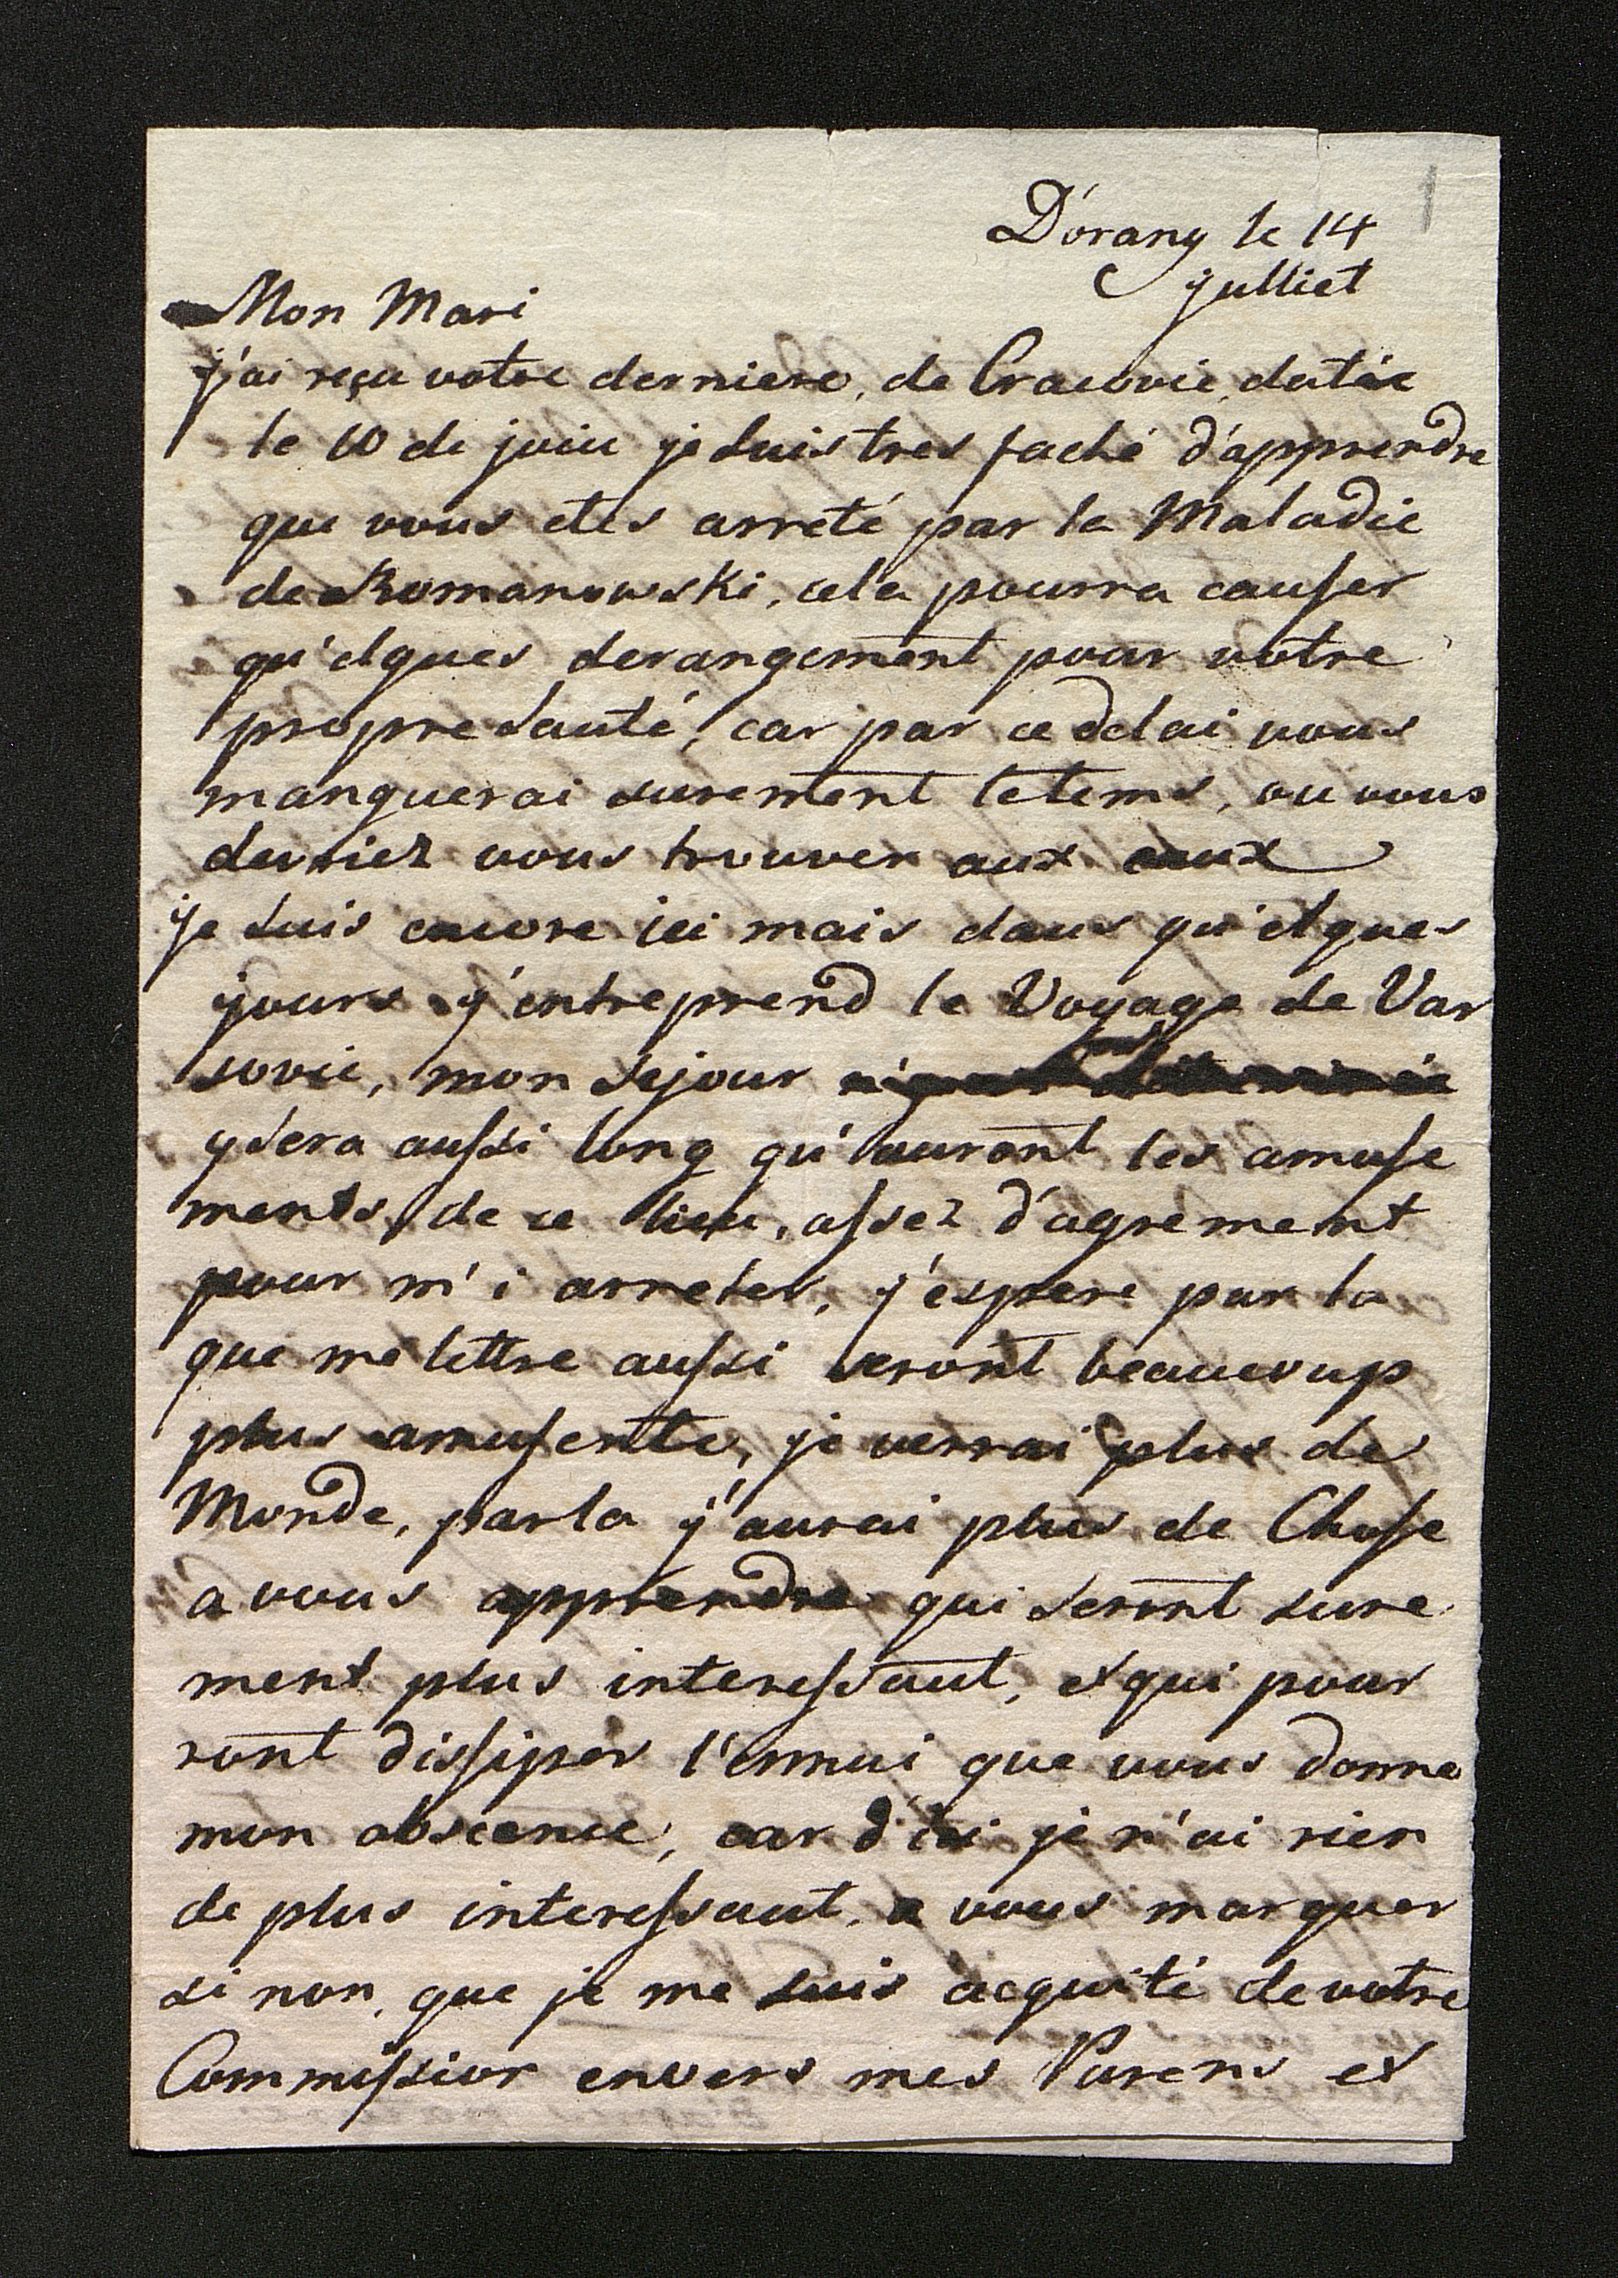 1
D'orany le 14
julliet
Mon Mari
j'ai reçu votre derniere, de Cracovie, datée
le 10 de juin je suis tres faché d'apprendre
que vous etes arreté par la Maladie
de Romanowski, cela pourra causer
qu'elques derangement pour votre
propre santé, car par ce delai vous
manquerai surement le tems, ou vous
devriez vous trouver aux eaux
je suis encore ici mais dans qu'elques
jours j'entreprend le Voyage de Var
sovie, mon sejour
y sera aussi long qu'auront les amuse
ments de ce lieu, assez d'agrement
pour m'i arreter, j'espere par la
que me lettre aussi seront beaucoup
plus amusente, je verrai plus de
Monde, par la j'aurai plus de Chose
a vous apprendre qui seront sure
ment plus interessant, et qui pour
ront dissiper l'ennui que vous donne
mon abscence, car d'ici je n'ai rien
de plus interessant, a vous marquer
si non, que je me suis acquité de votre
Commission envers mes Parens et